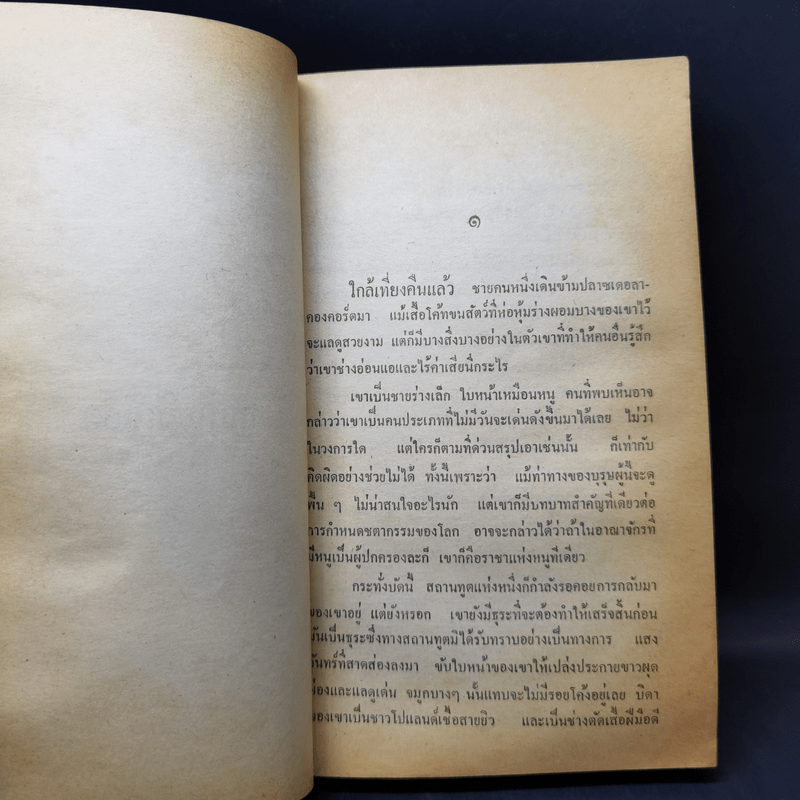 ๑
ใกล้เที่ยงคืนแล้ว ชายคนหนึ่งเดินข้ามปลาซเดอลา-
คองคอร์ดมา แม้เสื้อโค้ทขนสัตว์ที่ห่อหุ้มร่างผอมบางของเขาไว้
จะแลดูสวยงาม แต่ก็มีบางสิ่งบางอย่างในตัวเขาที่ทำให้คนอื่นรู้สึก
ว่าเขาช่างอ่อนแอและไร้ค่าเสียนี่กระไร
เขาเป็นชายร่างเล็ก ใบหน้าเหมือนหนู คนที่พบเห็นอาจ
กล่าวว่าเขาเป็นคนประเภทที่ไม่มีวันจะเด่นดังขึ้นมาได้เลย ไม่ว่า
ในวงการใด แต่ใครก็ตามที่ด่วนสรุปเอาเช่นนั้น ก็เท่ากับ
คิดผิดอย่างช่วยไม่ได้ ทั้งนี้เพราะว่า แม้ท่าทางของบุรุษผู้นี้จะดู
พื้น ๆ ไม่น่าสนใจอะไรนัก แต่เขาก็มีบทบาทสำคัญทีเดียวต่อ
การกำหนดชตากรรมของโลก อาจจะกล่าวได้ว่าถ้าในอาณาจักรที่
มีหนูเป็นผู้ปกครองละก็ เขาก็คือราชาแห่งหนูทีเดียว
กระทั่งบัดนี้ สถานทูตแห่งหนึ่งก็กำลังรอคอยการกลับมา
ของเขาอยู่ แต่ยังหรอก เขายังมีธุระที่จะต้องทำให้เสร็จสิ้นก่อน
มันเป็นธุระซึ่งทางสถานทูตมิได้รับทราบอย่างเป็นทางการ แสง
จันทร์ที่สาดส่องลงมา ขับใบหน้าของเขาให้เปล่งประกายขาวผุด
ผ่องและแลดูเด่น จมูกบางๆ นั้นแทบจะไม่มีรอยโค้งอยู่เลย บิดา
ของเขาเป็นชาวโปแลนด์เชื้อสายยิว และเป็นช่างตัดเสื้อฝีมือดี